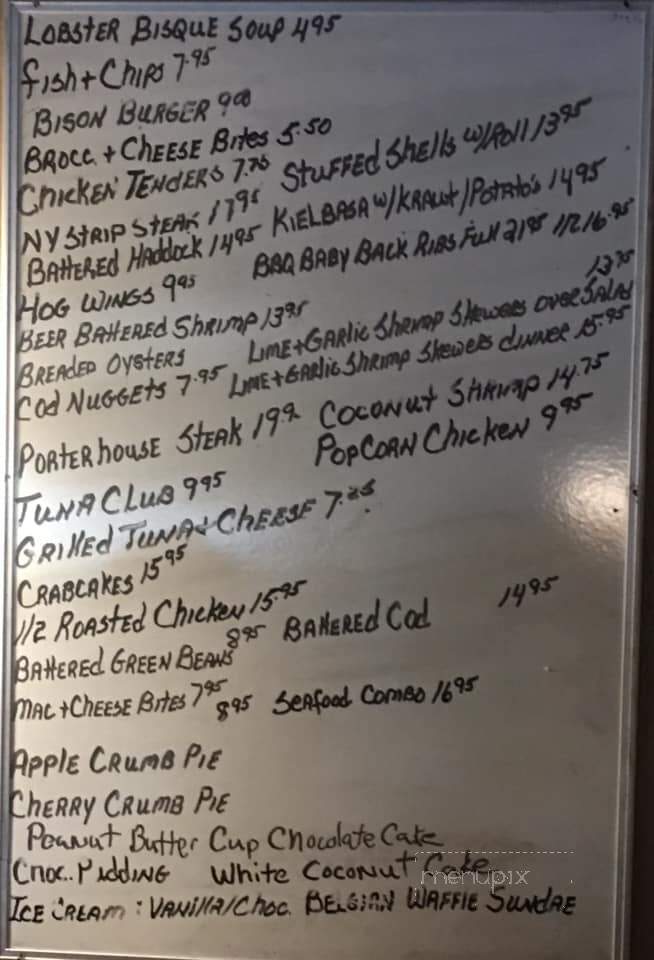 LOBSTER BISQUE SOUP 4.95
fish + Chips 7.95
BISON BURGER 9.00
BROCC. + CHEESE Bites 5.50
CHICKEN TENDERS 7.75
STUFFED Shells w/Roll 13.95
NY STRIP STEAK 17.95
BATTERED HADDOCK 14.95
KIELBASA w/KRAUT/POTATO'S 14.95
HOG WINGS 9.95
BBQ BABY BACK RIBS Full 21.95 1/2 16.95
BEER BATTERED SHRIMP 13.95
BREADED OYSTERS
LIME+GARLIC SHRIMP Skewers OVER SALAD 13.75
COD NUGGETS 7.95
LIME+GARLIC SHRIMP Skewers dinner 15.95
PORTERhOUSE STEAK 19.92
COCONUT SHRIMP 14.75
POPCORN CHICKEN 9.95
TUNA CLUB 9.95
GRILLED TUNA + CHEESE 7.25
CRABCAKES 15.95
1/2 ROASTED CHICKEN 15.95
BATTERED GREEN BEANS 8.95
BATTERED COD 14.95
MAC + CHEESE BITES 7.95 8.95
SEAFOOD COMBO 16.95
APPLE CRUMB PIE
CHERRY CRUMB PIE
Peanut Butter Cup Chocolate Cake
CHOC.. PUDDING White Coconut Cake
ICE CREAM : VANILLA/CHOC. BELGIAN WAFFLE SUNDAE
menupix